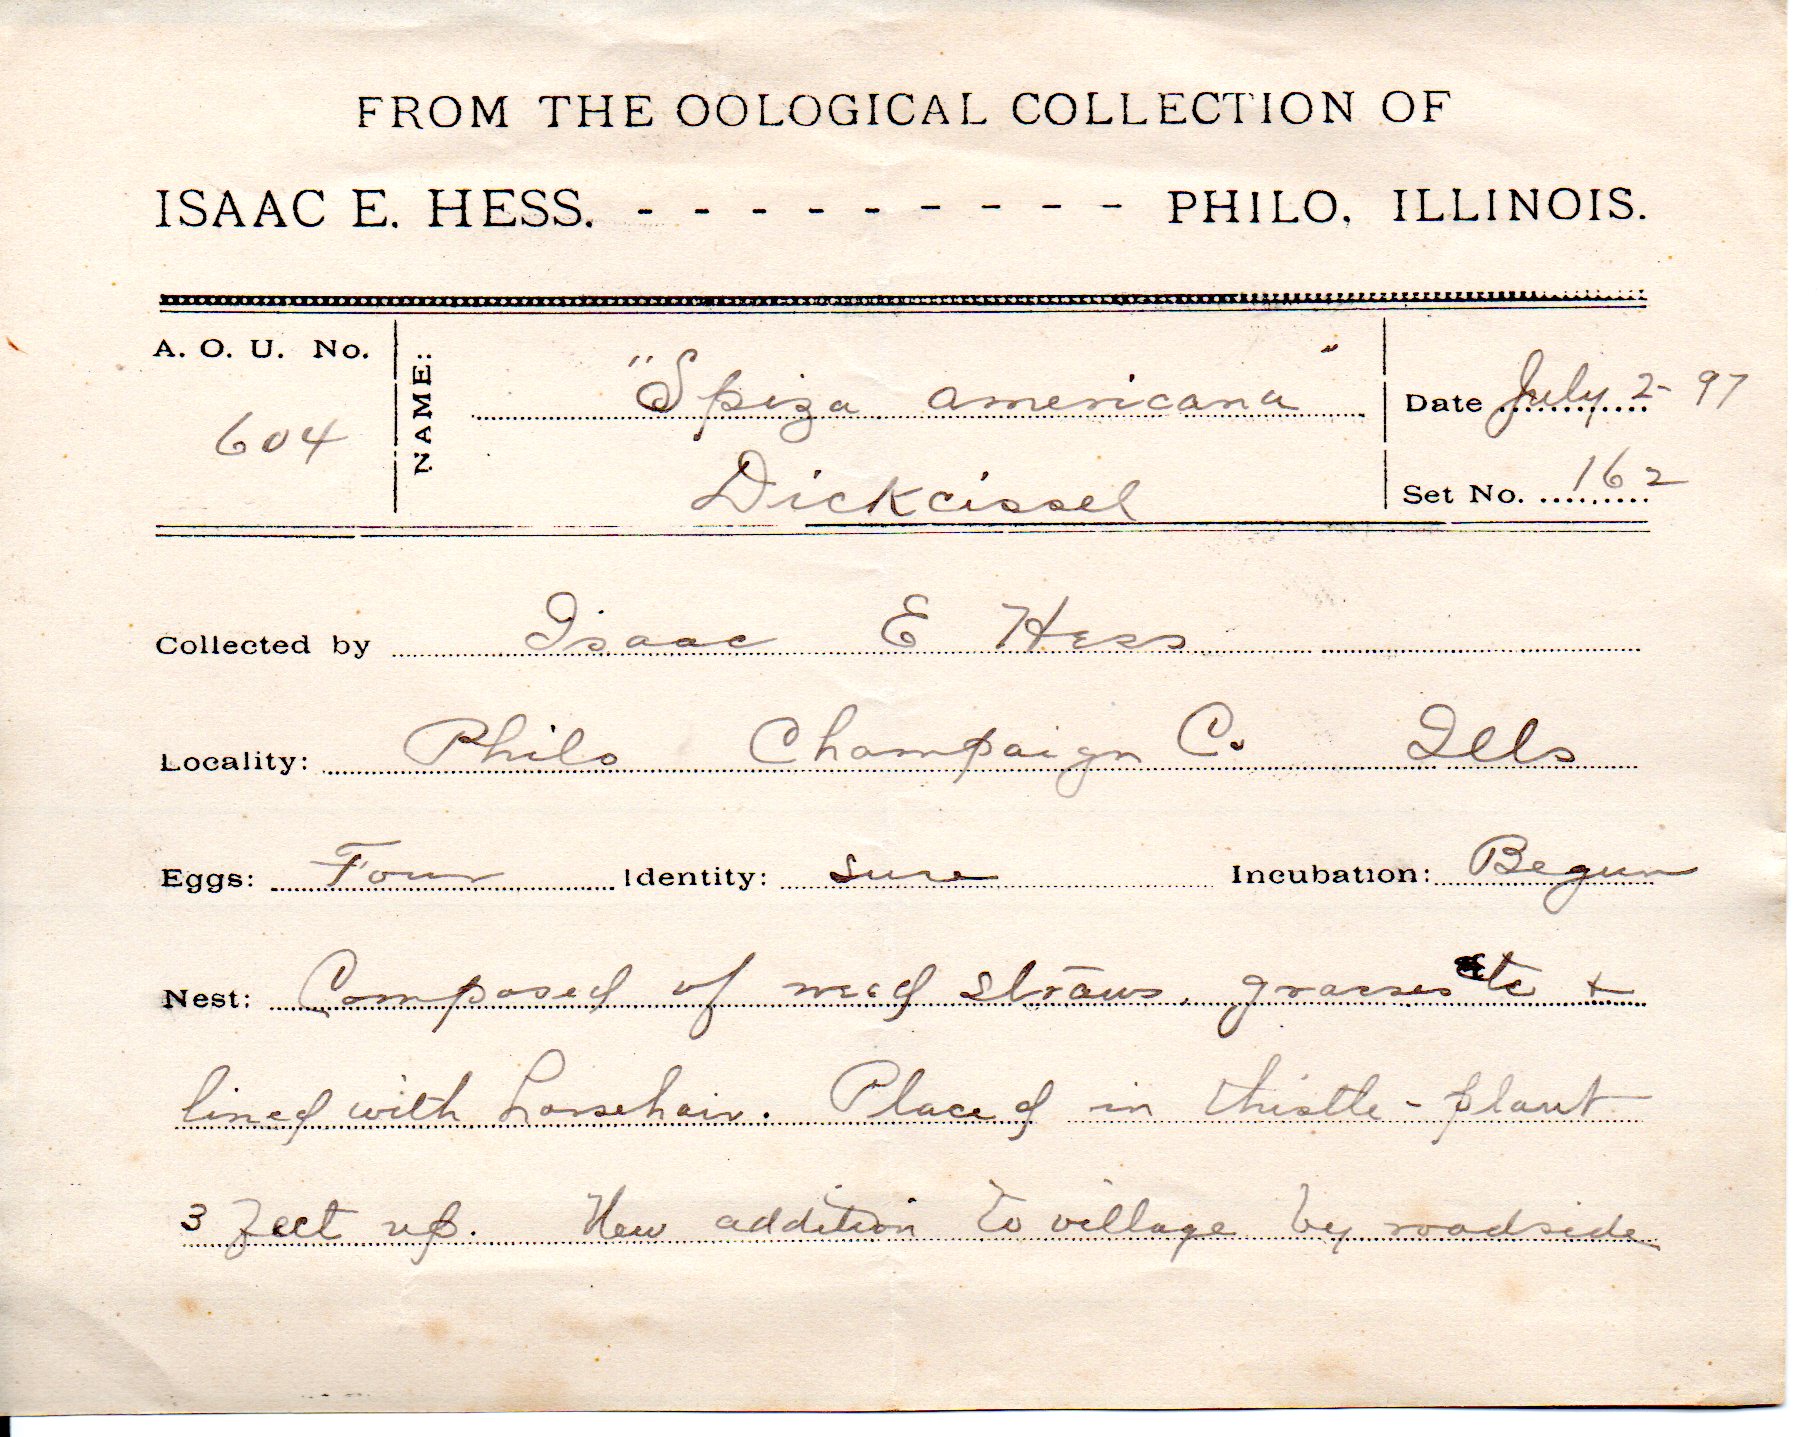 FROM THE OOLOGICAL COLLECTION OF
ISAAC E. HESS. - - - - - - - - - PHILO, ILLINOIS.
A. O. U. No. 604
NAME: "Spiza americana"
Dickcissel
Date July 2 - 97
Set No. 162
Collected by Isaac E Hess
Locality: Philo Champaign Co. Ills
Eggs: Four Identity: Sure Incubation: Begun
Nest: Composed of weed straws, grasses etc +
lined with horsehair. Placed in thistle-plant
3 feet up. New addition to village by roadside